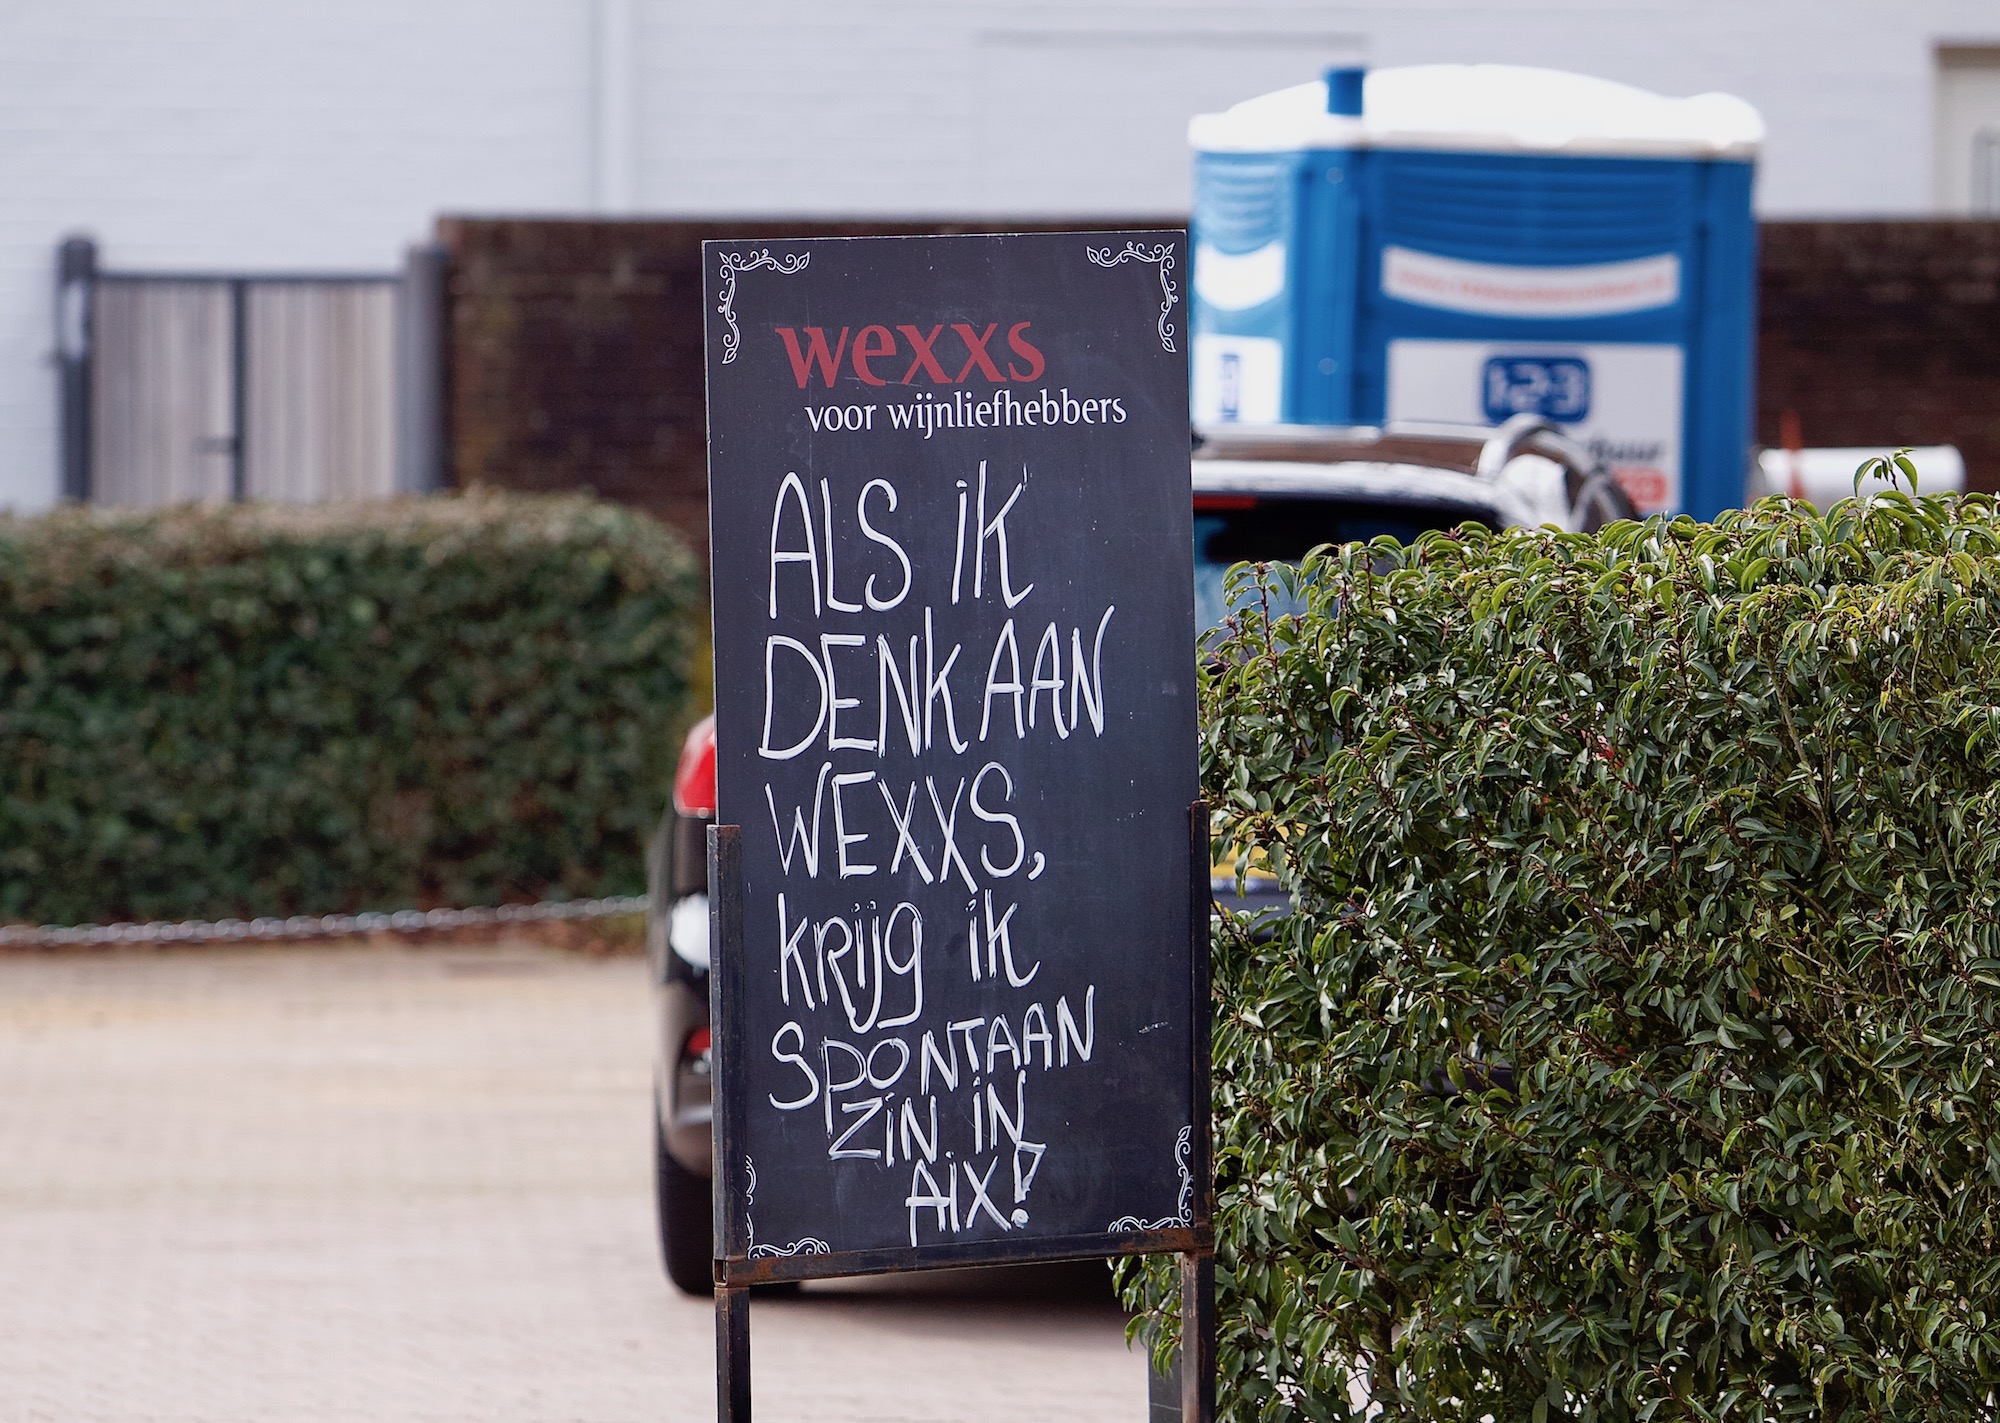 wexxs
voor wijnliefhebbers
ALS IK
DENK AAN
WEXXS,
KRIJG IK
SPONTAAN
ZIN IN
AIX!
123